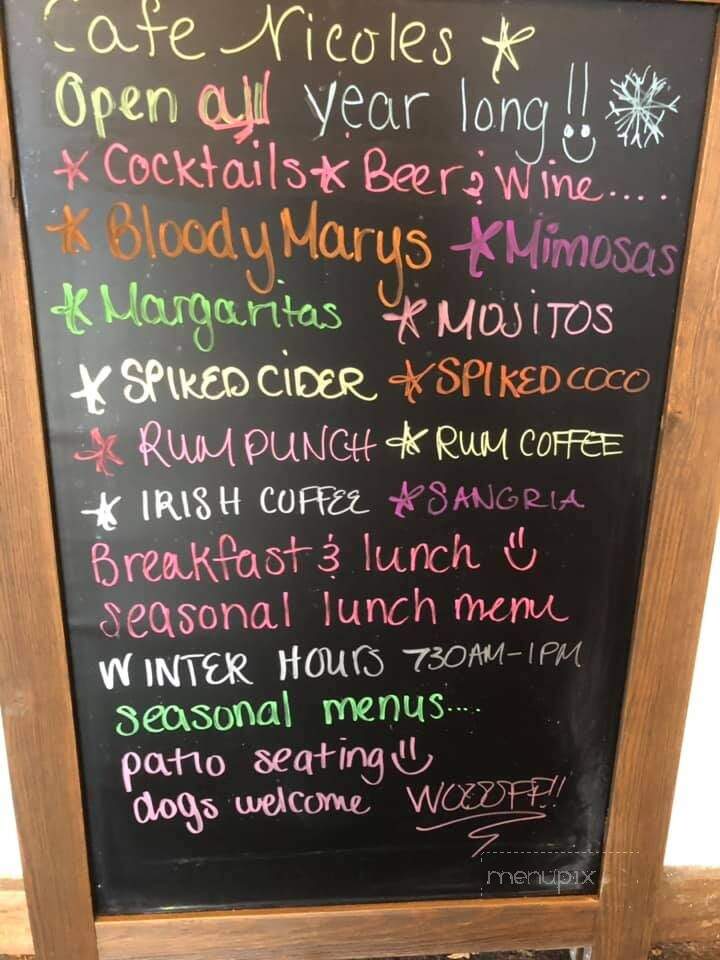 Cafe Nicoles *
Open all year long!!
* Cocktails * Beer & Wine....
* Bloody Marys * Mimosas
* Margaritas * MOJITOS
* SPIKED CIDER * SPIKED COCO
* RUM PUNCH * RUM COFFEE
* IRISH COFFEE * SANGRIA
Breakfast & lunch
seasonal lunch menu
WINTER HOURS 730AM-1PM
seasonal menus....
patio seating
dogs welcome WOOOFF!!
menupix